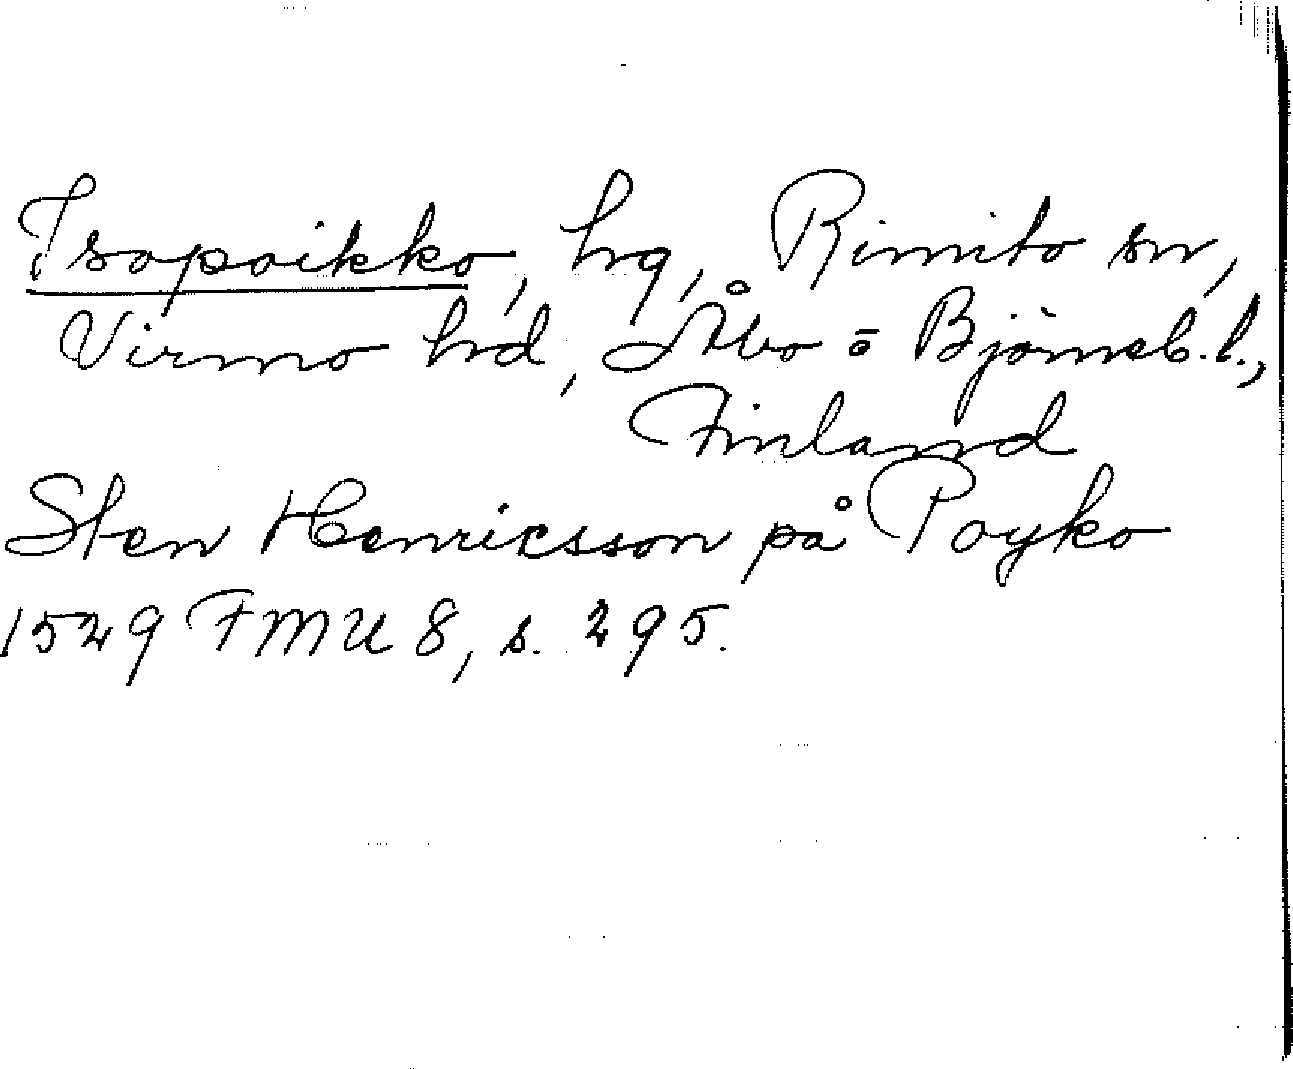 Isopoikko, hg, Rimito sn,
Virmo hd, Åbo o Björneb. l.,
Finland
Sten Henricsson på Poyko
1529 FMU 8, s. 295.